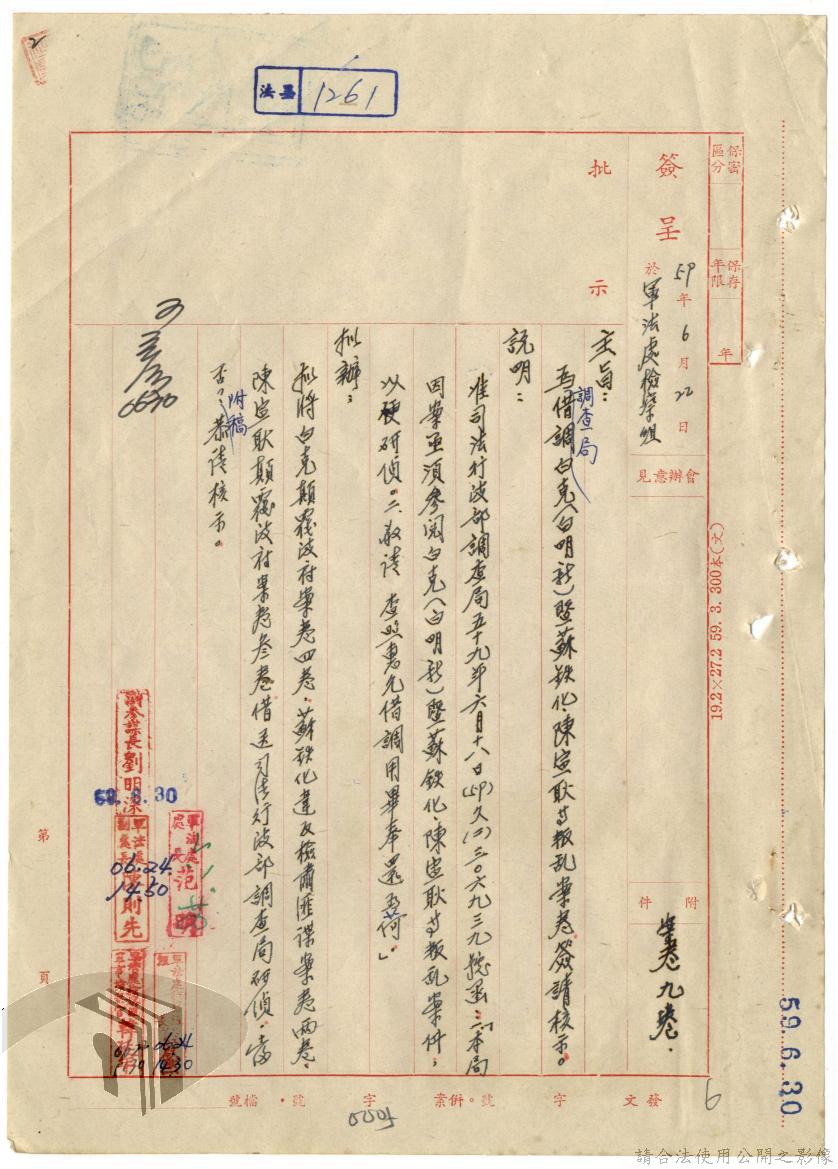 法墨
1261
保密區分
保存年限
年
簽呈
於
59年6月22日
軍法處檢察組
批示
會辦意見
附件
案卷九卷.
主旨：
為調查局借調白克(白明新)暨蘇鉄化、陳宣耿等叛乱案卷簽請核示。
説明：
准司法行政部調查局五十九年六月十八日(59)久(二)三〇六九三九號函：「一、本局
因案亟須參閱白克(白明新)暨蘇鉄化、陳宣耿等叛乱案件，
以便研偵。二、敬請 查照惠允借調用畢奉還為荷」。
拟辦：
拟將白克顛覆政府案卷四卷、蘇鉄化違反檢肅匪諜案卷兩卷、
陳宣耿顛覆政府案卷叁卷借送司法行政部調查局研偵，當
否？附稿恭請核示。
可
0630
副參謀長劉明深
59.6.30
軍法處處長范明
軍法處副處長
則先
06.24.
1450
06.24
1430
第
頁
19.2×27.2 59. 3. 300本(文)
59.6.30
59.6.30
發文
字
號。併案
字
號。檔號
6
2
請合法使用公開之影像